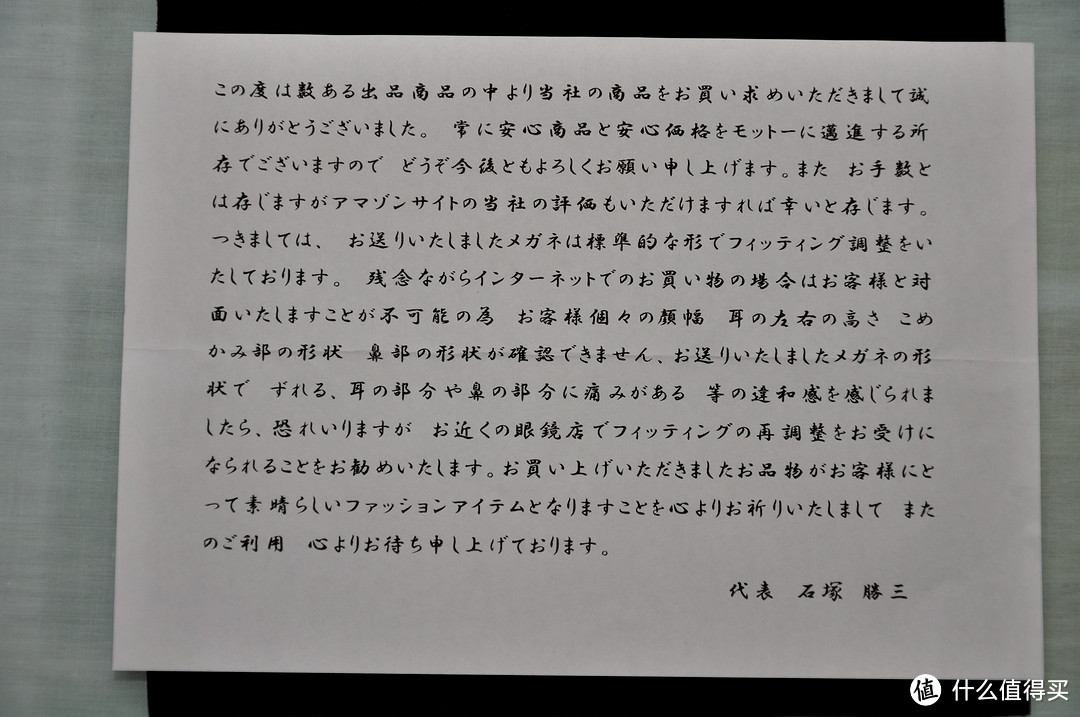 この度は数ある出品商品の中より当社の商品をお買い求めいただきまして誠
にありがとうございました。 常に安心商品と安心価格をモットーに邁進する所
存でございますので どうぞ今後ともよろしくお願い申し上げます。また お手数と
は存じますがアマゾンサイトの当社の評価もいただけますれば幸いと存じます。
つきましては、 お送りいたしましたメガネは標準的な形でフィッティング調整をい
たしております。 残念ながらインターネットでのお買い物の場合はお客様と対
面いたしますことが不可能の為 お客様個々の顔幅 耳の左右の高さ こめ
かみ部の形状 鼻部の形状が確認できません、お送りいたしましたメガネの形
状で ずれる、耳の部分や鼻の部分に痛みがある 等の違和感を感じられま
したら、恐れいりますが お近くの眼鏡店でフィッティングの再調整をお受けに
なられることをお勧めいたします。お買い上げいただきましたお品物がお客様にと
って素晴らしいファッションアイテムとなりますことを心よりお祈りいたしまして また
のご利用 心よりお待ち申し上げております。
代表 石塚 勝三
值 什么值得买